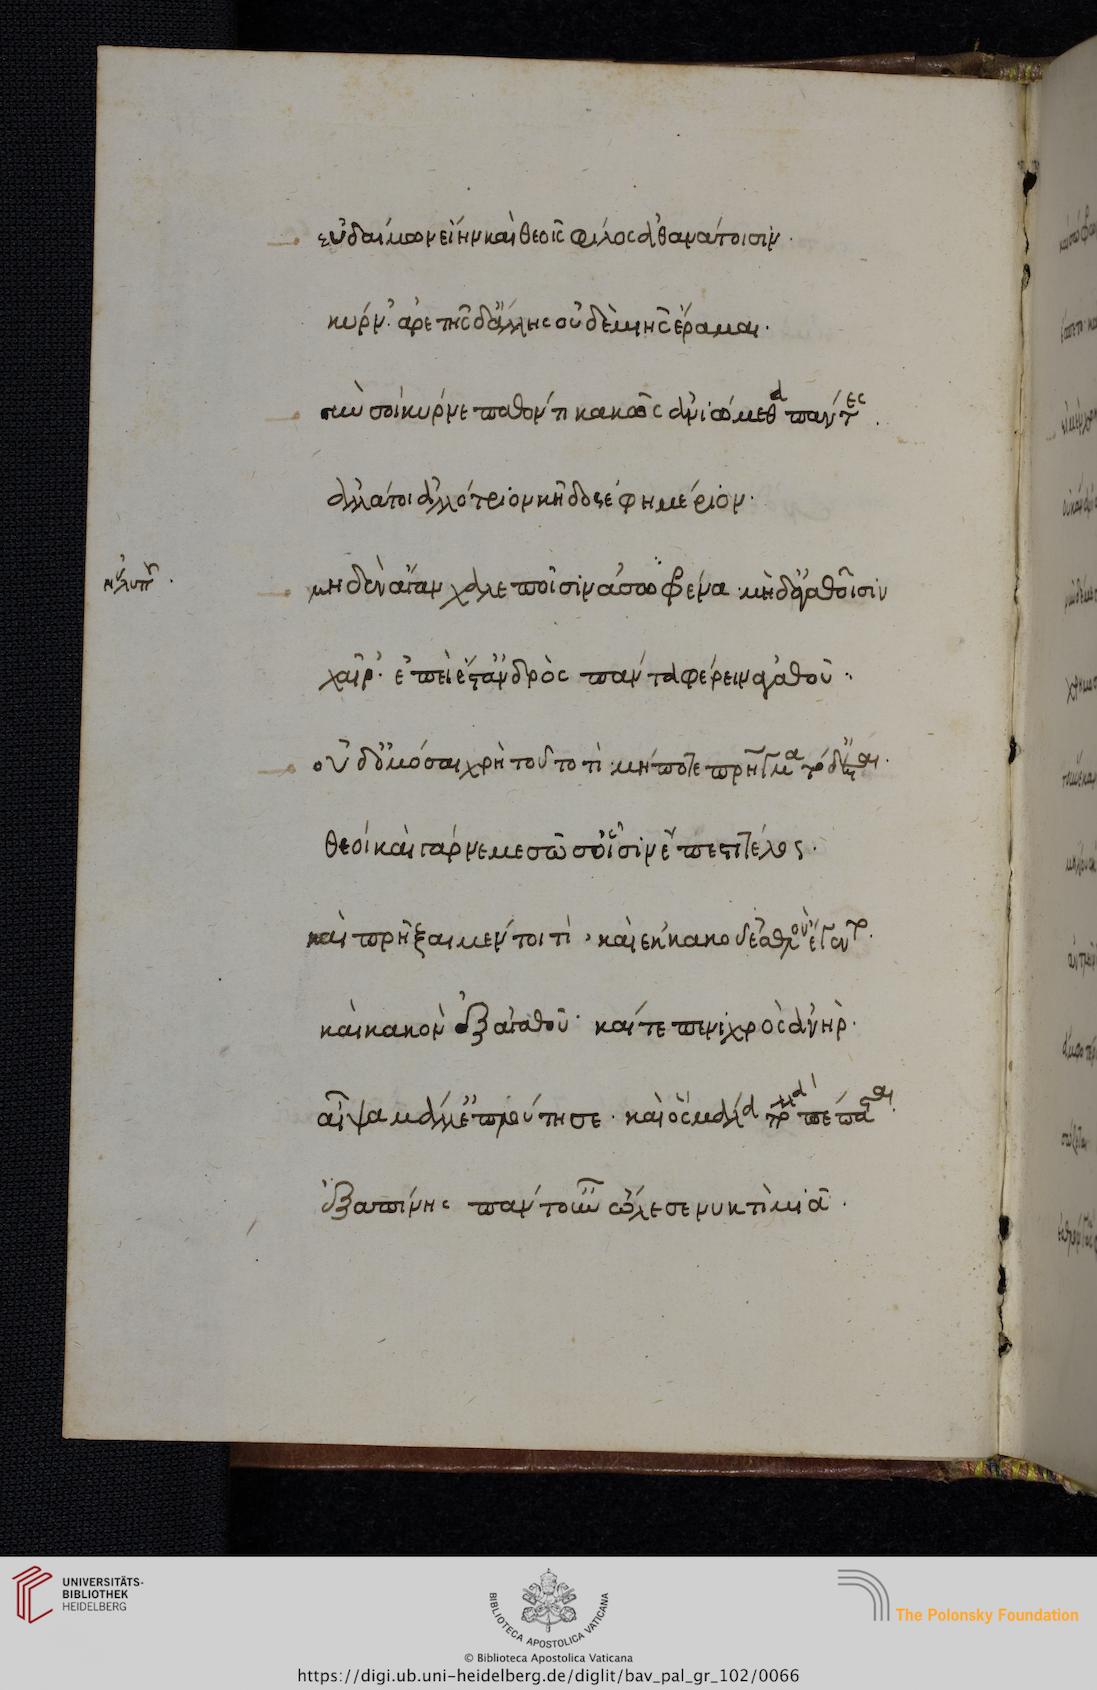 εὐδαίμων εἴην καὶ θεοῖς φίλος ἀθανάτοισιν.
κύρν'. ἀρετῆς δ' ἄλλης οὐδὲμιῆς ἔραμαι.
σὺν σοί κύρνε παθόντι κακῶς ἀνιώμεθα πάντες.
ἀλλά τοι ἀλλότριον κῆδος ἐφημέριον.
μηδὲν ἄγαν χαλεποῖσιν ἀσῶ φρένα. μὴδ' ἀγαθοῖσιν
χαῖρ'. ἐπεὶ ἔστ' ἀνδρὸς πάντα φέρειν ἀγαθοῦ.
οὐδ' ὀμόσαι χρὴ τοῦτο τὶ. μήποτε πρῆγμα τόδ' ἔσται.
θεοί καὶ γάρ νεμεσῶσ' οἷσιν ἔπεστι τέλος.
καὶ πρῆξαι μέντοι τὶ, καὶ ἐκ κακοῦ ἐσθλὸν ἔγεντο.
καὶ κακὸν ἐξ ἀγαθοῦ. καί τε πενιχρὸς ἀνὴρ.
αἶψα μάλ' ἐπλούτησε. καὶ ὃς μάλα πολλὰ πέπαται.
ἐξαπίνης πάντ' οὖν ὤλεσε νυκτὶ μιᾶ.
UNIVERSITÄTS-
BIBLIOTHEK
HEIDELBERG
BIBLIOTECA APOSTOLICA VATICANA
The Polonsky Foundation
© Biblioteca Apostolica Vaticana
https://digi.ub.uni-heidelberg.de/diglit/bav_pal_gr_102/0066